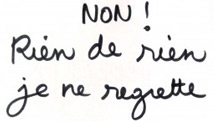 NON !
Rien de rien
je ne regrette